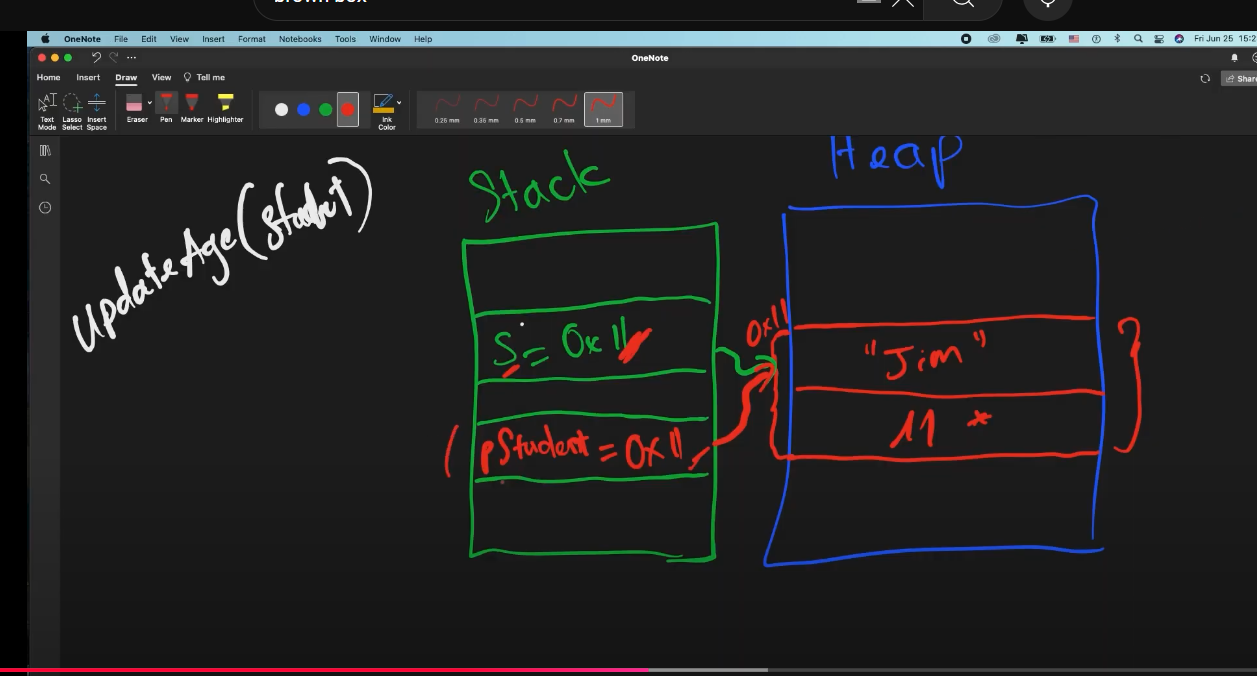 brown box
OneNote File Edit View Insert Format Notebooks Tools Window Help Fri Jun 25 15:2
OneNote
Home Insert Draw View Tell me Share
Text Mode Lasso Select Insert Space Eraser Pen Marker Highlighter Ink Color 0.25 mm 0.35 mm 0.5 mm 0.7 mm 1 mm
Heap
Stack
UpdateAge(Studet)
0x11
S = 0x11
"Jim"
11 *
pStudent = 0x11